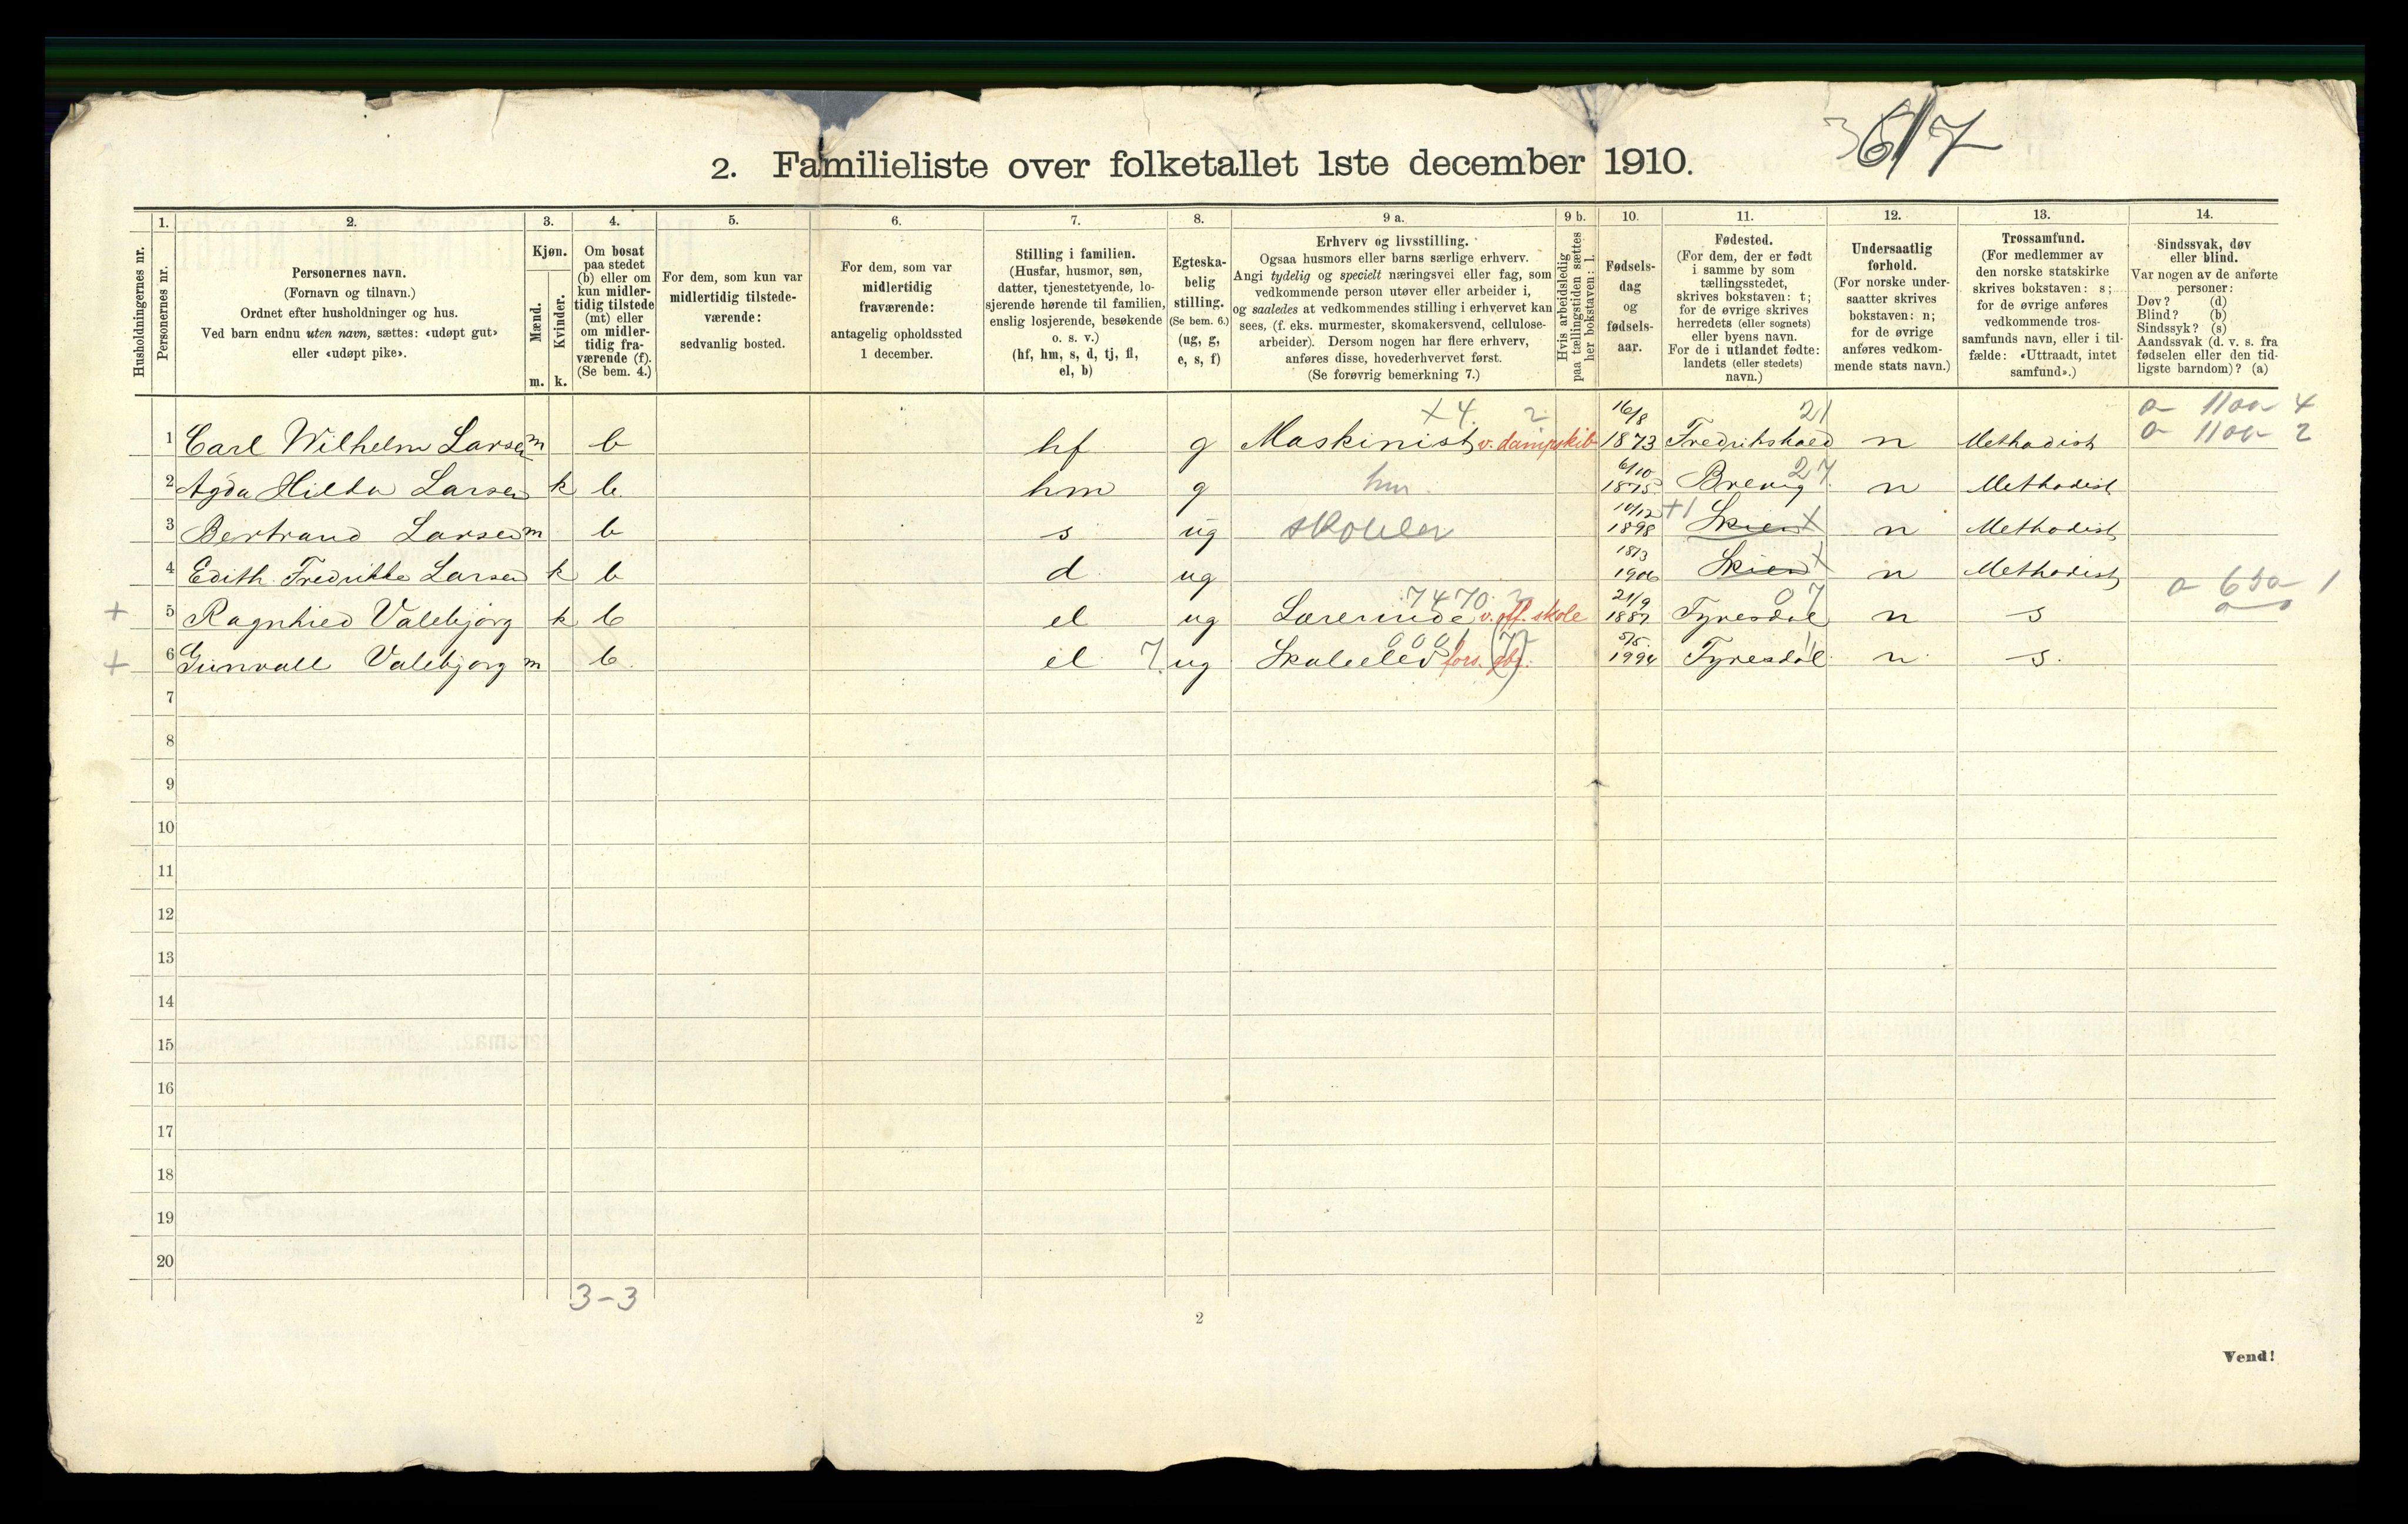 367
2. Familieliste over folketallet 1ste december 1910.
1. 2. 3. 4. 5. 6. 7. 8. 9 a. 9 b. 10. 11. 12. 13. 14.
Husholdningernes nr.
Personernes nr.
Personernes navn.
(Fornavn og tilnavn.)
Ordnet efter husholdninger og hus.
Ved barn endnu uten navn, sættes: «udøpt gut»
eller «udøpt pike».
Kjøn.
Mænd.
Kvinder.
m. k.
Om bosat
paa stedet
(b) eller om
kun midler-
tidig tilstede
(mt) eller
om midler-
tidig fra-
værende (f).
(Se bem. 4.)
For dem, som kun var
midlertidig tilstede-
værende:
sedvanlig bosted.
For dem, som var
midlertidig
fraværende:
antagelig opholdssted
1 december.
Stilling i familien.
(Husfar, husmor, søn,
datter, tjenestetyende, lo-
sjerende hørende til familien,
enslig losjerende, besøkende
o. s. v.)
(hf, hm, s, d, tj, fl,
el, b)
Egteska-
belig
stilling.
(Se bem. 6.)
(ug, g,
e, s, f)
Erhverv og livsstilling.
Ogsaa husmors eller barns særlige erhverv.
Angi tydelig og specielt næringsvei eller fag, som
vedkommende person utøver eller arbeider i,
og saaledes at vedkommendes stilling i erhvervet kan
sees, (f. eks. murmester, skomakersvend, cellulose-
arbeider). Dersom nogen har flere erhverv,
anføres disse, hovederhvervet først.
(Se forøvrig bemerkning 7.)
Hvis arbeidsledig
paa tællingstiden sættes
her bokstaven: l.
Fødsels-
dag
og
fødsels-
aar.
Fødested.
(For dem, der er født
i samme by som
tællingsstedet,
skrives bokstaven: t;
for de øvrige skrives
herredets (eller sognets)
eller byens navn.
For de i utlandet fødte:
landets (eller stedets)
navn.)
Undersaatlig
forhold.
(For norske under-
saatter skrives
bokstaven: n;
for de øvrige
anføres vedkom-
mende stats navn.)
Trossamfund.
(For medlemmer av
den norske statskirke
skrives bokstaven: s;
for de øvrige anføres
vedkommende tros-
samfunds navn, eller i til-
fælde: «Uttraadt, intet
samfund».)
Sindssvak, døv
eller blind.
Var nogen av de anførte
personer:
Døv? (d)
Blind? (b)
Sindssyk? (s)
Aandssvak (d. v. s. fra
fødselen eller den tid-
ligste barndom)? (a)
x 4. 2 16/8 21
1 Carl Wilhelm Larsen m b hf g Maskinist v. dampskib 1873 Fredrikshald n Methodist
6/10 27
2 Agda Hilda Larsen k b. hm g hm. 1875 Brevig n Methodist
10/12 +1
3 Bertrand Larsen m b s ug skoleelev 1898 Skien x n Methodist
18/3
4 Edith Fredrikke Larsen k b d ug 1906 Skien x n Methodist
7470. 21/9 07
+ 5 Ragnhied Valebjørg k b el ug Lærerinde v. off. skole 1887 Tyresdal n s
0001 (7) 5/5
+ 6 Gunvall Valebjørg m b. el 7 ug Skoleelev fors. 1994 Tyresdal n s.
7
8
9
10
11
12
13
14
15
16
17
18
19
20
3-3
2
Vend!